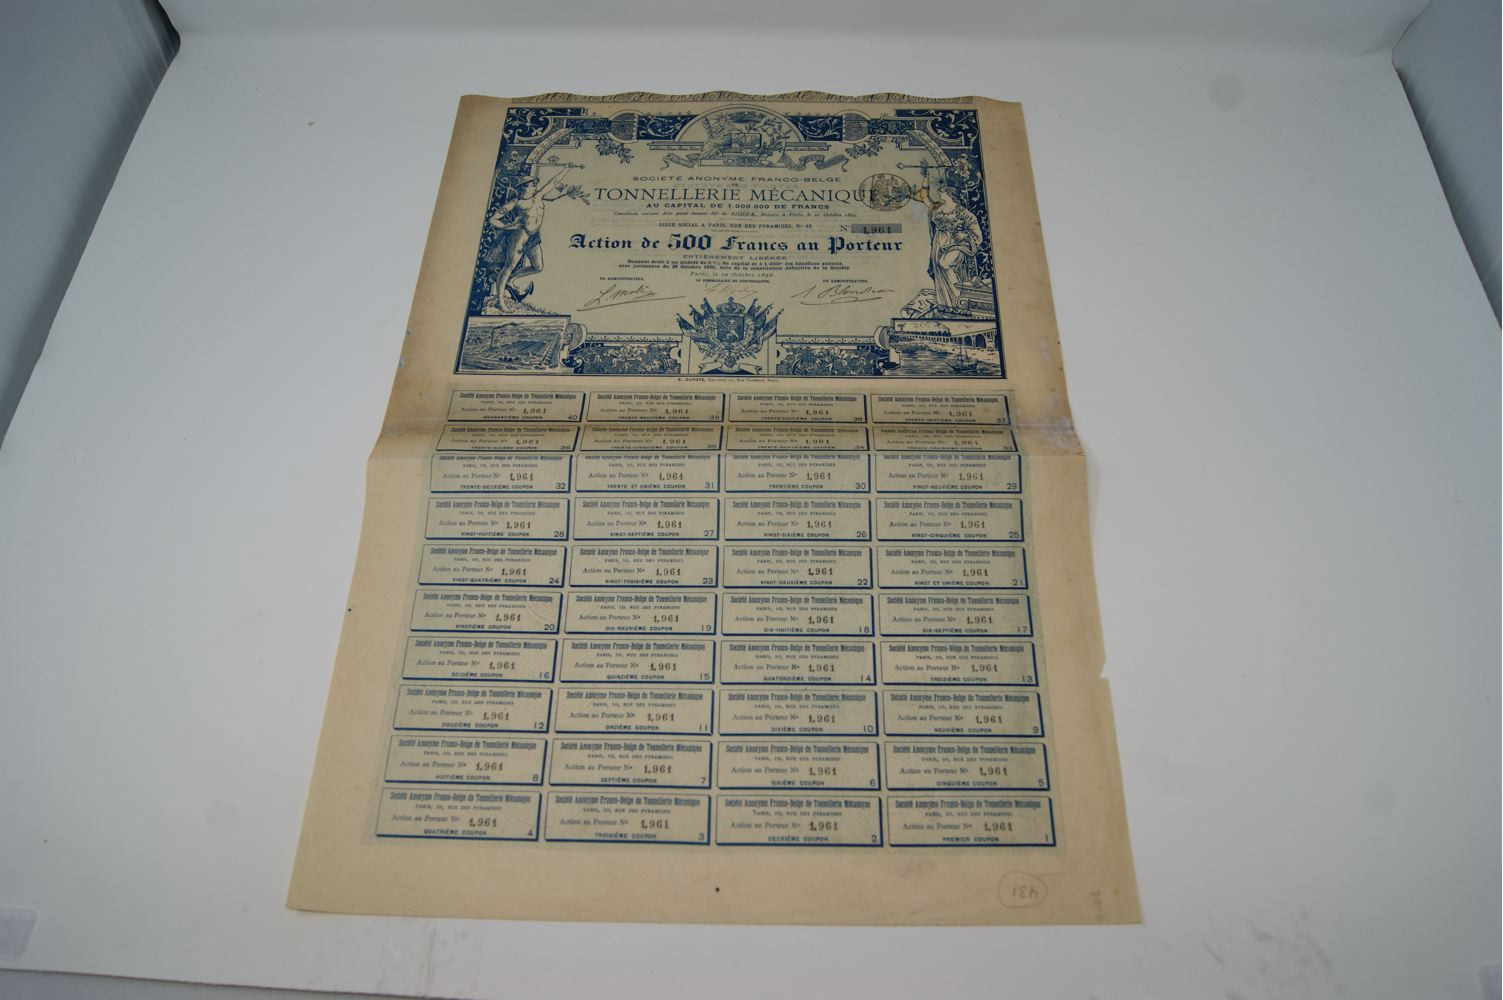 SOCIÉTÉ ANONYME FRANCO-BELGE
DE
TONNELLERIE MÉCANIQUE
AU CAPITAL DE 1.000.000 DE FRANCS
Constituée suivant Acte passé devant Me de RIDDER, Notaire à Paris, le 21 Octobre
SIÈGE SOCIAL A PARIS, RUE DES PYRAMIDES, No 10
No 1,961
Action de 500 Francs au Porteur
ENTIÈREMENT LIBÉRÉE
Donnant droit à un intérêt de 5 %, du capital et à des bénéfices annuels,
avec jouissance du 29 Octobre 1895, date de la constitution définitive de la Société.
Paris, le 10 Octobre 1896
UN ADMINISTRATEUR, LE COMMISSAIRE DE SURVEILLANCE, UN ADMINISTRATEUR,
Paris.
Société Anonyme Franco-Belge de Tonnellerie Mécanique
PARIS, 10, RUE DES PYRAMIDES
Action au Porteur No 1,961
QUARANTIÈME COUPON 40
Société Anonyme Franco-Belge de Tonnellerie Mécanique
PARIS, 10, RUE DES PYRAMIDES
Action au Porteur No 1,961
TRENTE-NEUVIÈME COUPON 39
Société Anonyme Franco-Belge de Tonnellerie Mécanique
PARIS, 10, RUE DES PYRAMIDES
Action au Porteur No 1,961
TRENTE-HUITIÈME COUPON 38
Société Anonyme Franco-Belge de Tonnellerie Mécanique
PARIS, 10, RUE DES PYRAMIDES
Action au Porteur No 1,961
TRENTE-SEPTIÈME COUPON 37
Société Anonyme Franco-Belge de Tonnellerie Mécanique
PARIS, 10, RUE DES PYRAMIDES
Action au Porteur No 1,961
TRENTE-SIXIÈME COUPON 36
Société Anonyme Franco-Belge de Tonnellerie Mécanique
PARIS, 10, RUE DES PYRAMIDES
Action au Porteur No 1,961
TRENTE-CINQUIÈME COUPON 35
Société Anonyme Franco-Belge de Tonnellerie Mécanique
PARIS, 10, RUE DES PYRAMIDES
Action au Porteur No 1,961
TRENTE-QUATRIÈME COUPON 34
Société Anonyme Franco-Belge de Tonnellerie Mécanique
PARIS, 10, RUE DES PYRAMIDES
Action au Porteur No 1,961
TRENTE-TROISIÈME COUPON 33
Société Anonyme Franco-Belge de Tonnellerie Mécanique
PARIS, 10, RUE DES PYRAMIDES
Action au Porteur No 1,961
TRENTE-DEUXIÈME COUPON 32
Société Anonyme Franco-Belge de Tonnellerie Mécanique
PARIS, 10, RUE DES PYRAMIDES
Action au Porteur No 1,961
TRENTE ET UNIÈME COUPON 31
Société Anonyme Franco-Belge de Tonnellerie Mécanique
PARIS, 10, RUE DES PYRAMIDES
Action au Porteur No 1,961
TRENTIÈME COUPON 30
Société Anonyme Franco-Belge de Tonnellerie Mécanique
PARIS, 10, RUE DES PYRAMIDES
Action au Porteur No 1,961
VINGT-NEUVIÈME COUPON 29
Société Anonyme Franco-Belge de Tonnellerie Mécanique
PARIS, 10, RUE DES PYRAMIDES
Action au Porteur No 1,961
VINGT-HUITIÈME COUPON 28
Société Anonyme Franco-Belge de Tonnellerie Mécanique
PARIS, 10, RUE DES PYRAMIDES
Action au Porteur No 1,961
VINGT-SEPTIÈME COUPON 27
Société Anonyme Franco-Belge de Tonnellerie Mécanique
PARIS, 10, RUE DES PYRAMIDES
Action au Porteur No 1,961
VINGT-SIXIÈME COUPON 26
Société Anonyme Franco-Belge de Tonnellerie Mécanique
PARIS, 10, RUE DES PYRAMIDES
Action au Porteur No 1,961
VINGT-CINQUIÈME COUPON 25
Société Anonyme Franco-Belge de Tonnellerie Mécanique
PARIS, 10, RUE DES PYRAMIDES
Action au Porteur No 1,961
VINGT-QUATRIÈME COUPON 24
Société Anonyme Franco-Belge de Tonnellerie Mécanique
PARIS, 10, RUE DES PYRAMIDES
Action au Porteur No 1,961
VINGT-TROISIÈME COUPON 23
Société Anonyme Franco-Belge de Tonnellerie Mécanique
PARIS, 10, RUE DES PYRAMIDES
Action au Porteur No 1,961
VINGT-DEUXIÈME COUPON 22
Société Anonyme Franco-Belge de Tonnellerie Mécanique
PARIS, 10, RUE DES PYRAMIDES
Action au Porteur No 1,961
VINGT ET UNIÈME COUPON 21
Société Anonyme Franco-Belge de Tonnellerie Mécanique
PARIS, 10, RUE DES PYRAMIDES
Action au Porteur No 1,961
VINGTIÈME COUPON 20
Société Anonyme Franco-Belge de Tonnellerie Mécanique
PARIS, 10, RUE DES PYRAMIDES
Action au Porteur No 1,961
DIX-NEUVIÈME COUPON 19
Société Anonyme Franco-Belge de Tonnellerie Mécanique
PARIS, 10, RUE DES PYRAMIDES
Action au Porteur No 1,961
DIX-HUITIÈME COUPON 18
Société Anonyme Franco-Belge de Tonnellerie Mécanique
PARIS, 10, RUE DES PYRAMIDES
Action au Porteur No 1,961
DIX-SEPTIÈME COUPON 17
Société Anonyme Franco-Belge de Tonnellerie Mécanique
PARIS, 10, RUE DES PYRAMIDES
Action au Porteur No 1,961
SEIZIÈME COUPON 16
Société Anonyme Franco-Belge de Tonnellerie Mécanique
PARIS, 10, RUE DES PYRAMIDES
Action au Porteur No 1,961
QUINZIÈME COUPON 15
Société Anonyme Franco-Belge de Tonnellerie Mécanique
PARIS, 10, RUE DES PYRAMIDES
Action au Porteur No 1,961
QUATORZIÈME COUPON 14
Société Anonyme Franco-Belge de Tonnellerie Mécanique
PARIS, 10, RUE DES PYRAMIDES
Action au Porteur No 1,961
TREIZIÈME COUPON 13
Société Anonyme Franco-Belge de Tonnellerie Mécanique
PARIS, 10, RUE DES PYRAMIDES
Action au Porteur No 1,961
DOUZIÈME COUPON 12
Société Anonyme Franco-Belge de Tonnellerie Mécanique
PARIS, 10, RUE DES PYRAMIDES
Action au Porteur No 1,961
ONZIÈME COUPON 11
Société Anonyme Franco-Belge de Tonnellerie Mécanique
PARIS, 10, RUE DES PYRAMIDES
Action au Porteur No 1,961
DIXIÈME COUPON 10
Société Anonyme Franco-Belge de Tonnellerie Mécanique
PARIS, 10, RUE DES PYRAMIDES
Action au Porteur No 1,961
NEUVIÈME COUPON 9
Société Anonyme Franco-Belge de Tonnellerie Mécanique
PARIS, 10, RUE DES PYRAMIDES
Action au Porteur No 1,961
HUITIÈME COUPON 8
Société Anonyme Franco-Belge de Tonnellerie Mécanique
PARIS, 10, RUE DES PYRAMIDES
Action au Porteur No 1,961
SEPTIÈME COUPON 7
Société Anonyme Franco-Belge de Tonnellerie Mécanique
PARIS, 10, RUE DES PYRAMIDES
Action au Porteur No 1,961
SIXIÈME COUPON 6
Société Anonyme Franco-Belge de Tonnellerie Mécanique
PARIS, 10, RUE DES PYRAMIDES
Action au Porteur No 1,961
CINQUIÈME COUPON 5
Société Anonyme Franco-Belge de Tonnellerie Mécanique
PARIS, 10, RUE DES PYRAMIDES
Action au Porteur No 1,961
QUATRIÈME COUPON 4
Société Anonyme Franco-Belge de Tonnellerie Mécanique
PARIS, 10, RUE DES PYRAMIDES
Action au Porteur No 1,961
TROISIÈME COUPON 3
Société Anonyme Franco-Belge de Tonnellerie Mécanique
PARIS, 10, RUE DES PYRAMIDES
Action au Porteur No 1,961
DEUXIÈME COUPON 2
Société Anonyme Franco-Belge de Tonnellerie Mécanique
PARIS, 10, RUE DES PYRAMIDES
Action au Porteur No 1,961
PREMIER COUPON 1
431